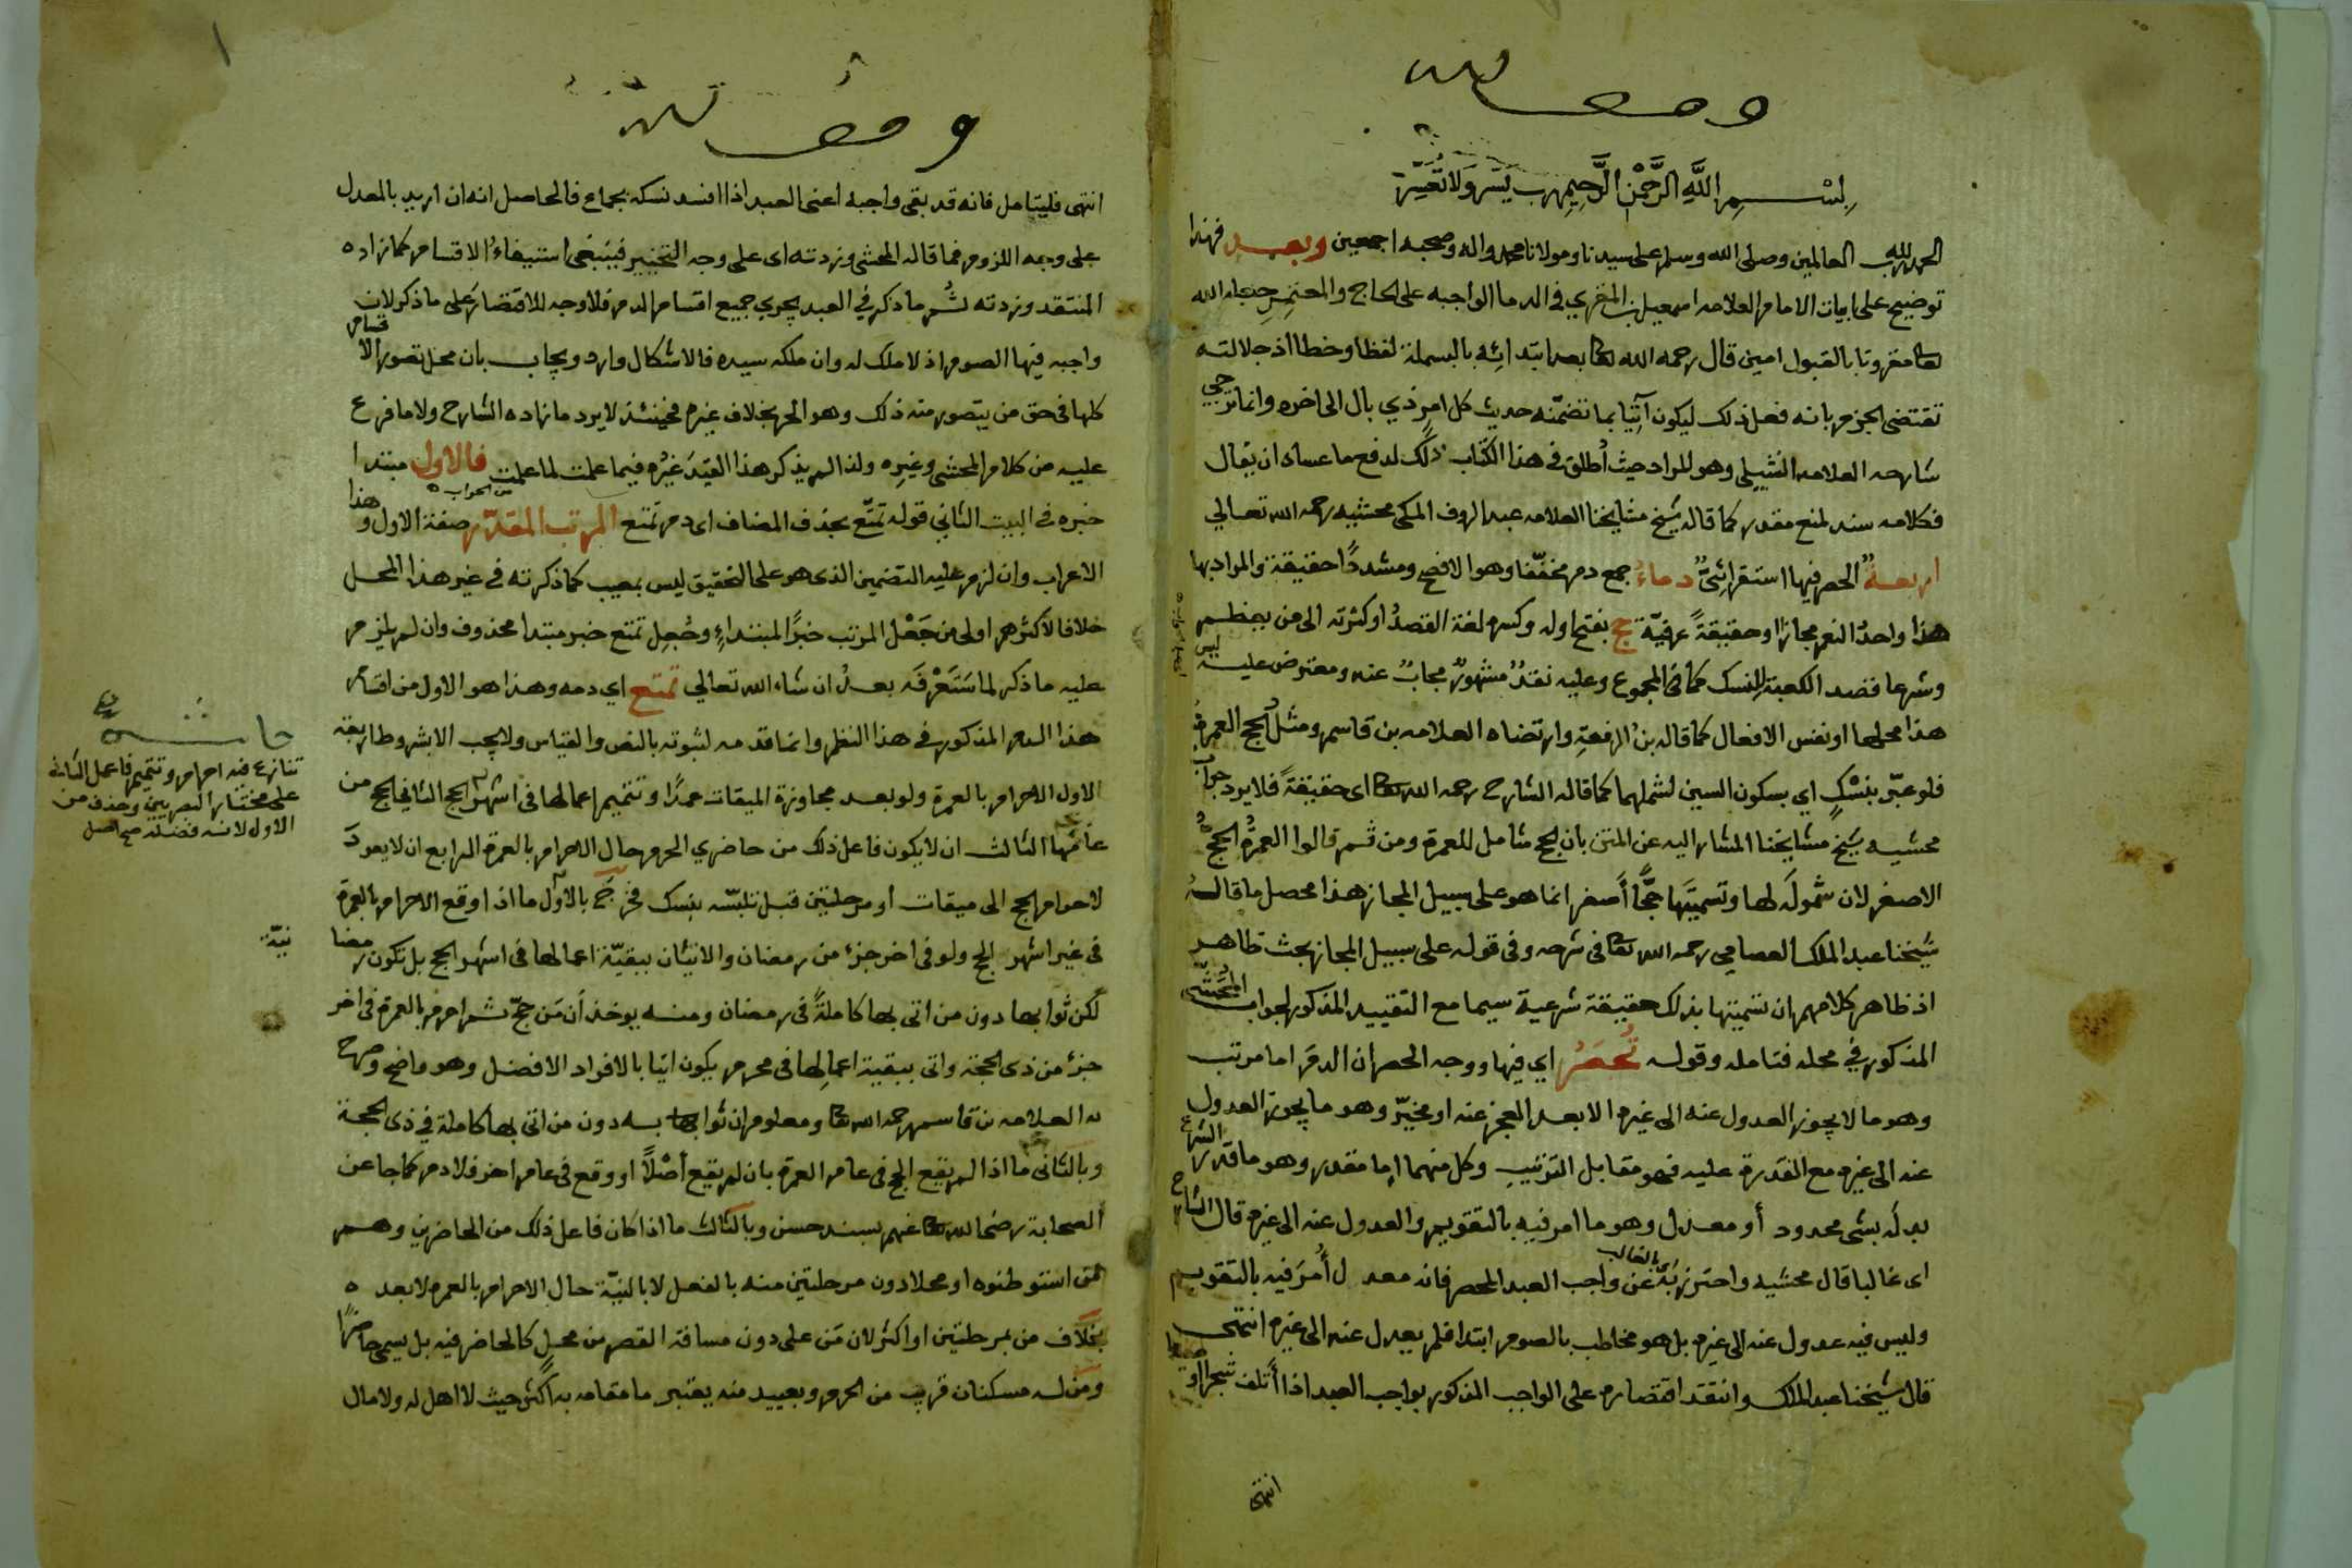 وقف لله
بسم الله الرحمن الرحيم رب يسر ولا تعسر
الحمد لله رب العالمين وصلى الله وسلم على سيدنا ومولانا محمد واله وصحبه اجمعين وبعد فهذا
توضيح على ابيات الامام العلامه اسمعيل بن المغري في الدما الواجبه على الحاج والمعتمر جعله الله
تعا مقرونا بالقبول امين قال رحمه الله تعا بعد ابتدائه بالبسملة لفظا وخطا اذ جلالته
تقتضى الجزم بانه فعل ذلك ليكون آتيا بما تضمنه حديث كل امر ذي بال الى اخره وانما ترجي
شارحه العلامه النشيلي وهو المراد حيث أطلق في هذا الكتاب ذلك لدفع ما عساه ان يقال
فكلامه سند لمنع مقدر كما قاله شيخ مشايخنا العلامه عبد الروف المكى محشيه رحمه الله تعالي
اربعةٌ الحصر فيها استقرائىٌّ دماءُ جمع دم مخففا وهو الافصح ومشددًا حقيقة والمراد بها
هذا واحدُ النعم مجازا او حقيقةً عرفيّة حج بفتح اوله وكسره لغة القصدُ او كثرته الى من يعظم
وشرعا قصد الكعبة للنسك كما في المجموع وعليه نقدٌ مشهورٌ مجابٌ عنه ومعترض عليه ليس
هذا محلها او نفس الافعال كما قاله بن الرفعةِ وارتضاه العلامه بن قاسم ومثلُ الحج العمرةُ
فلو عبّر بنسْكٍ اي بسكون السين لشملهما كما قاله الشارح رحمه الله تعا اى حقيقةً فلا يرد جواب
محشيه شيخ مشايخنا المشار اليه عن المتن بان الحج شامل للعمرة ومن ثم قالوا العمرةُ الحجُّ
الاصغر لان شمولَه لها وتسميتَها حجًّا أصغر انما هو على سبيل المجاز هذا محصل ما قاله
شيخنا عبد الملك العصامي رحمه الله تعا في شرحه وفى قوله على سبيل المجاز بحث ظاهر
اذ ظاهر كلامهم ان تسميتها بذلك حقيقة شرعية سيما مع التقييد المذكور لجواب المحشى
المذكور في محله فتامله وقوله تُحصَرُ اي فيها ووجه الحصر ان الدم اما مرتب
وهو ما لا يجوز العدول عنه الى غيره الا بعد العجز عنه او مخيّر وهو ما يجوز العدول
عنه الى غيره مع القدرة عليه فهو مقابل الترتيب وكل منهما اما مقدر وهو ما قدر الشرع
بدلَه بشى محدود أو معدل وهو ما امر فيه بالتقويم والعدول عنه الى غيره قال الشارح
اى غالبا قال محشيه واحترز به اى بالغالب عن واجب العبد المحصر فانه معدل أُمرَ فيه بالتقويم
وليس فيه عدول عنه الى غيره بل هو مخاطب بالصوم ابتدا فلم يعدل عنه الى غيره انتهى
قال شيخنا عبد الملك وانتقد اقتصاره على الواجب المذكور بواجب العبد اذا أتلف شجرا او صيدا
انتهى
١
وقف لله
انتهى فليتامل فانه قد بقى واجبه اعنى العبد اذا افسد نسكه بجماع فالحاصل انه ان اريد بالمعدل
على وجه اللزوم فما قاله المحشى وزدته اى على وجه التخيير فينبغى استيفاءُ الاقسام كما زاده
المنتقد وزدته ثم ما ذكر في العبد يجري جميع اقسام الدم فلا وجه للاقتصار على ما ذكر لان
واجبه فيها الصوم اذ لا ملك له وان ملكه سيده فالاشكال وارد ويجاب بان محل تصور الاقسام
كلها فى حق من يتصور منه ذلك وهو الحر بخلاف غيره فحينئذ لا يرد ما زاده الشارح ولا ما فرع
عليه من كلام المحشى وغيره ولذا لم يذكر هذا القيدَ غيرُه فيما علمت لما علمت من الجواب فالاول مبتدا
خبره في البيت الثاني قوله تمتّع بحذف المضاف اى دم تمتع المرتب المقدّر صفة الاول وهذا
الاعراب وان لزم عليه التضمين الذى هو على التحقيق ليس بعيب كما ذكرته في غير هذا المحل
خلافا لاكثرهم اولى من جَعْل المرتب خبرًا لمبتداءِ وجُعِل تمتع خبر مبتدا محذوف وان لم يلزم
عليه ما ذكر لما ستَعْرفَه بعدُ ان شاء الله تعالي تمتع اي دمه وهذا هو الاول من اقسام
هذا الدم المذكور في هذا النظم وانما قدمه لثبوته بالنص والقياس ولا يجب الا بشروط اربعة
الاول الاحرام بالعمرة ولو بعد مجاوزة الميقات عمدًا وتتميم اعمالها فى اشهر الحج الثاني الحج من
عامها الثالث ان لا يكون فاعل ذلك من حاضري الحرم حال الاحرام بالعمرة الرابع ان لا يعودَ
لاحرام الحج الى ميقات او مرحلتين قبل تلبّسه بنسك فخرج بالاول ما اذا اوقع الاحرام بالعمرة
فى غير اشهر الحج ولو فى اخر جزء من رمضان والاتيان ببقيّة اعمالها فى اشهر الحج بل تكون رمضانيّة
لكن ثوابها دون من اتى بها كاملةً فى رمضان ومنه يوخذ أن مَن حجّ ثم احرم بالعمرة فى اخر
جزءٍ من ذى الحجة واتى ببقية اعمالها فى محرم يكون اتيا بالافراد الافضل وهو واضح وصرح
به العلامه بن قاسم رحمه الله تعا ومعلوم ان ثوابها به دون من اتى بها كاملة في ذى الحجة
وبالثانى ما اذا لم يقع الحج فى عام العمرة بان لم يقع أصْلًا او وقع فى عام اخر فلا دم كما جا عن
الصحابة رضى الله تعا عنهم بسند حسن وبالثالث ما اذا كان فاعل ذلك من الحاضرين وهم
من استوطنوه او محلا دون مرحلتين منه بالفعل لا بالنيّة حال الاحرام بالعمره لا بعده
بخلاف من بمرحلتين او اكثر لان مَن على دون مسافة القصر من محلٍ كالحاضر فيه بل يسمى حاضرًا
ومن له مسكنان قريب من الحرم وبعيد منه يعتبر ما مقامه به اكثر حيث لا اهل له ولا مال
حاشيه
تنازع فيه احرام وتتميم فاعمل الثانى
على مختار البصريين وحذف من
الاول لانه فضلة صح اصل